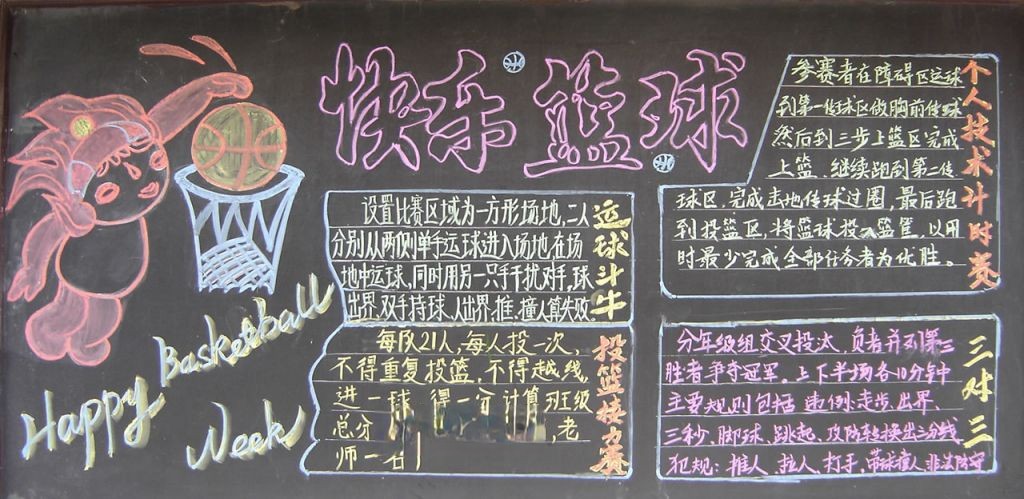 快乐篮球
Happy Basketball Week
设置比赛区域为一方形场地,二人
分别从两侧单手运球进入场地在场
地中运球,同时用另一只手干扰对手,球
出界,双手持球,人出界,推,撞人算失败
运球斗牛
每队21人,每人投一次,
不得重复投篮,不得越线,
进一球 得一分 计算班级
总分 ,老
师一名
投篮接力赛
参赛者在障碍区运球
到第一传球区做胸前传球
然后到三步上篮区完成
上篮,继续跑到第二传
球区,完成击地传球过圈,最后跑
到投篮区,将篮球投入篮筐,以用
时最少完成全部任务者为优胜。
个人技术计时赛
分年级组交叉投汰,负者并列第三
胜者争夺冠军。上下半场各10分钟
主要规则包括 违例:走步,出界,
三秒,脚球,跳起,攻防转换出三分线
犯规:推人,拉人,打手,带球撞人,非法防守
三对三